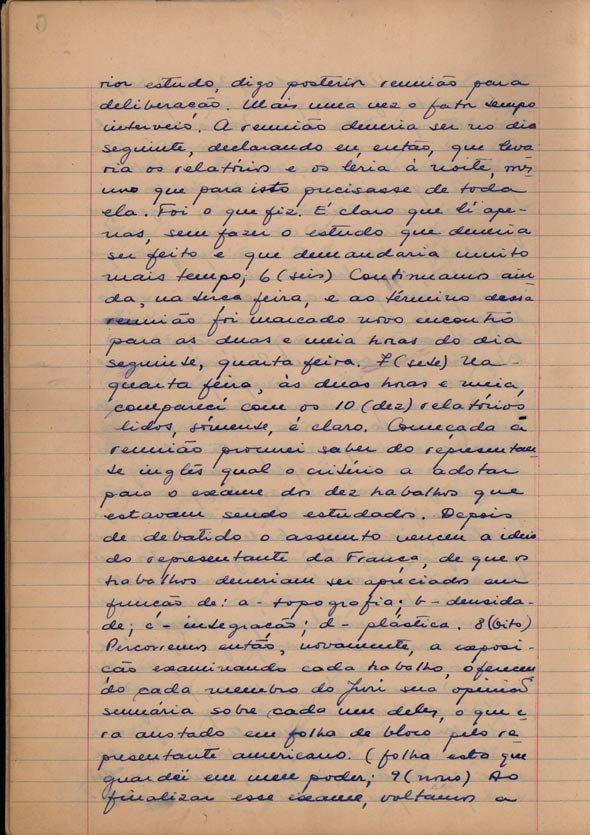 rior estudo, digo posterior reunião para
deliberação. Mais uma vez o fator tempo
interveió. A reunião deveria ser no dia
seguinte, declarando eu, então, que leva
ria os relatórios e os leria à noite, mes
mo que para isto precisasse de toda
ela. Foi o que fiz. É claro que li ape-
nas, sem fazer o estudo que deveria
ser feito e que demandaria muito
mais tempo; 6 (seis) Continuamos ain
da, na terça feira, e ao término dessa
reunião foi marcado novo encontro
para as duas e meia horas do dia
seguinte, quarta feira. 7 (sete) Na
quarta feira, às duas horas e meia,
comparecí com os 10 (dez) relatórios
lidos, sòmente, é claro. Começada a
reunião procurei saber do representan
te inglês qual o critério a adotar
para o exame dos dez trabalhos que
estavam sendo estudados. Depois
de debatido o assunto venceu a ideia
do representante da França, de que os
trabalhos deveriam ser apreciados em
função de: a - topografia; b - densida-
de; c - integração; d - plástica. 8 (oito)
Percorremos então, novamente, a exposi-
ção examinando cada trabalho, oferecen
do cada membro do Juri sua opinião
sumária sobre cada um deles, o que e-
ra anotado em folha de bloco pelo re
presentante americano. (folha esta que
guardei em meu poder; 9 (nove) Ao
finalizar esse exame, voltamos a